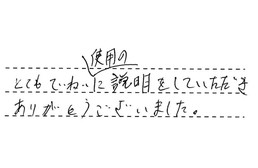 使用の
とてもていねいに説明をしていただき
ありがとうございました。